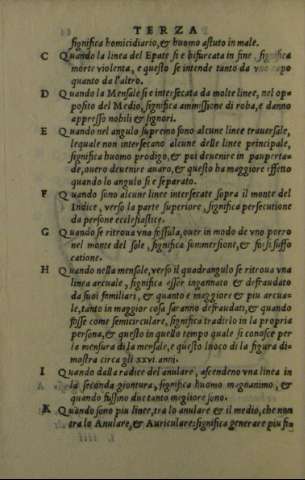 TERZA
significa homicidiario, & huomo astuto in male.
C Quando la linea del Epate si e bifurcata in fine, significa
morte violenta, e questo se intende tanto da vno capo
quanto da l'altro.
D Quando la Mensale si e intersecata da molte linee, nel op-
posito del Medio, significa ammissione di roba, e danno
appresso nobili & signori.
E Quando nel angulo supremo sono alcune linee trauersale,
lequale non intersecano alcune delle linee principale,
significa huomo prodigo, & poi deuenire in pauperta-
de, ouero deuenire auaro, & questo ha maggiore effetto
quando lo angulo si e separato.
F Quando sono alcune linee intersecate sopra il monte del
Indice, verso la parte superiore, significa persecutione
da persone ecclesiastice.
G Quando se ritroua vna fossula, ouer in modo de vno poero
nel monte del sole, significa sommersione, & forsi suffo
catione.
H Quando nella mensale, verso il quadrangulo se ritroua vna
linea arcuale, significa esser ingannato & defraudato
da suoi familiari, & quanto e maggiore & piu arcua-
le, tanto in maggior cosa saranno defraudati, & quando
fosse come semicirculare, significa tradirlo in la propria
persona, & questo in quello tempo quale si conosce per
la mensura di la mensale, e questo luoco di la figura di-
mostra circa gli xxvi anni.
I Quando dalla radice del anulare, ascendeno vna linea in
la seconda giontura, significa huomo magnanimo, &
quando fussino due tanto megliore sono.
K Quando sono piu linee, tra lo anulare & il medio, che non
tra lo Anulare, & Auriculare: significa generare piu fi-